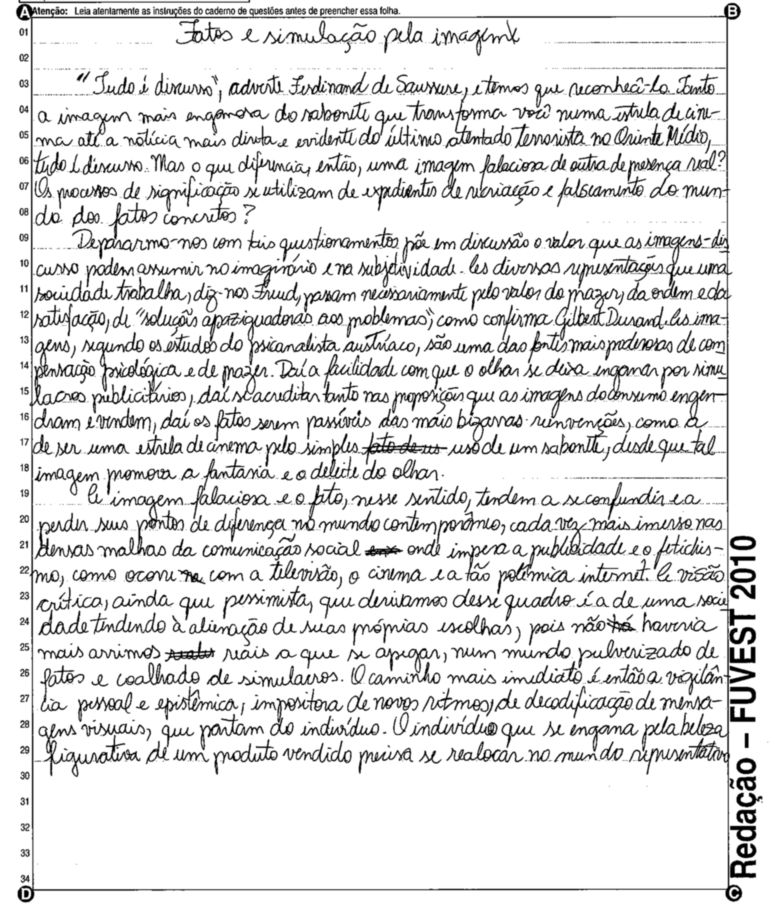 A Atenção: Leia atentamente as instruções do caderno de questões antes de preencher essa folha. B
01 Fatos e simulação pela imagem
02
03 "Tudo é discurso", adverte Ferdinand de Saussure, e temos que reconhecê-lo. Tanto
04 a imagem mais enganosa do sabonete que transforma você numa estrela de cine-
05 ma até a notícia mais direta e evidente do último atentado terrorista no Oriente Médio,
06 tudo é discurso. Mas o que diferencia, então, uma imagem falaciosa de outra de presença real?
07 Os processos de significação se utilizam de expedientes de recriação e falseamento do mun-
08 do dos fatos concretos?
09 Depararmo-nos com tais questionamentos põe em discussão o valor que as imagens-dis
10 curso podem assumir no imaginário e na subjetividade. As diversas representações que uma
11 sociedade trabalha, diz-nos Freud, passam necessariamente pelo valor do prazer, da ordem e da
12 satisfação, de "soluções apaziguadoras aos problemas", como confirma Gilbert Durand. As ima-
13 gens, segundo os estudos do psicanalista austríaco, são uma das fontes mais poderosas de com
14 pensação psicológica e de prazer. Daí a facilidade com que o olhar se deixa enganar por simu
15 lacros publicitários, daí se acreditar tanto nas proposições que as imagens do consumo engen-
16 dram e vendem, daí os fatos serem passíveis das mais bizarras reinvenções, como a
17 de ser uma estrela de cinema pelo simples uso de um sabonete, desde que tal
18 imagem promova a fantasia e o deleite do olhar.
19 A imagem falaciosa e o fato, nesse sentido, tendem a se confundir e a
20 perder seus pontos de diferença no mundo contemporâneo, cada vez mais imerso nas
21 densas malhas da comunicação social onde impera a publicidade e o fetichis-
22 mo, como ocorre com a televisão, o cinema e a tão polêmica internet. A visão
23 crítica, ainda que pessimista, que derivamos desse quadro é a de uma socie
24 dade tendendo à alienação de suas próprias escolhas, pois não haveria
25 mais arrimos reais a que se apegar, num mundo pulverizado de
26 fatos e coalhado de simulacros. O caminho mais imediato é então a vigilân-
27 cia pessoal e epistêmica, impositora de novos ritmos, de decodificação de mensa-
28 gens visuais, que partam do indivíduo. O indivíduo que se engana pela beleza
29 figurativa de um produto vendido precisa se realocar no mundo representativo
30
31
32
33
34
D C
Redação – FUVEST 2010